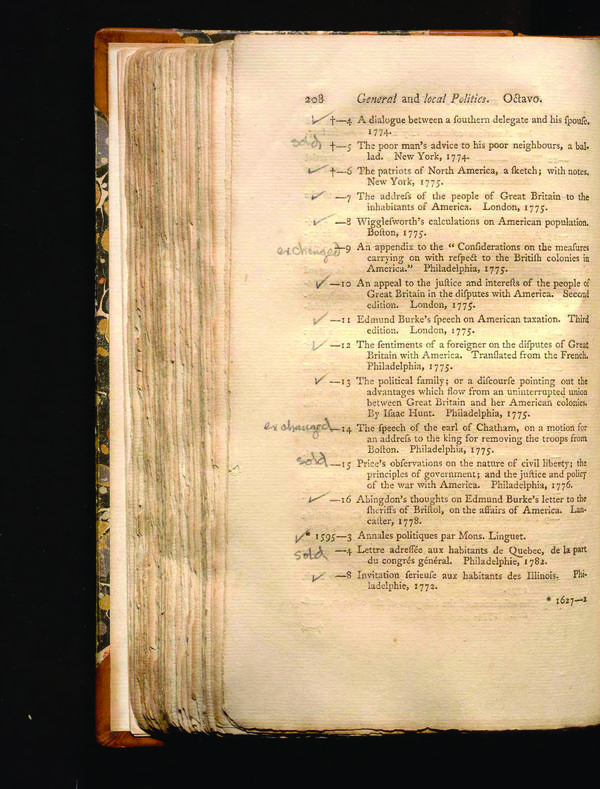 208 General and local Politics. Octavo.
✓ †—4 A dialogue between a ſouthern delegate and his ſpouſe.
1774.
sold †—5 The poor man's advice to his poor neighbours, a bal-
lad. New York, 1774.
✓ †—6 The patriots of North America, a ſketch; with notes.
New York, 1775.
✓ —7 The addreſs of the people of Great Britain to the
inhabitants of America. London, 1775.
✓ —8 Wiggleſworth's calculations on American population.
Boſton, 1775.
exchanged —9 An appendix to the "Conſiderations on the meaſures
carrying on with reſpect to the Britiſh colonies in
America." Philadelphia, 1775.
✓ —10 An appeal to the juſtice and intereſts of the people of
Great Britain in the diſputes with America. Second
edition. London, 1775.
✓ —11 Edmund Burke's ſpeech on American taxation. Third
edition. London, 1775.
✓ —12 The ſentiments of a foreigner on the diſputes of Great
Britain with America. Tranſlated from the French.
Philadelphia, 1775.
✓ —13 The political family; or a diſcourſe pointing out the
advantages which flow from an uninterrupted union
between Great Britain and her American colonies.
By Iſaac Hunt. Philadelphia, 1775.
exchanged —14 The ſpeech of the earl of Chatham, on a motion for
an addreſs to the king for removing the troops from
Boſton. Philadelphia, 1775.
sold —15 Price's obſervations on the nature of civil liberty; the
principles of government; and the juſtice and policy
of the war with America. Philadelphia, 1776.
✓ —16 Abingdon's thoughts on Edmund Burke's letter to the
ſheriffs of Briſtol, on the affairs of America. Lan-
caſter, 1778.
✓ * 1595—3 Annales politiques par Mons. Linguet.
sold —4 Lettre adreſſée aux habitants de Quebec, de la part
du congrés général. Philadelphie, 1782.
✓ —8 Invitation ſerieuſe aux habitants des Illinois. Phi-
ladelphie, 1772.
* 1627—1